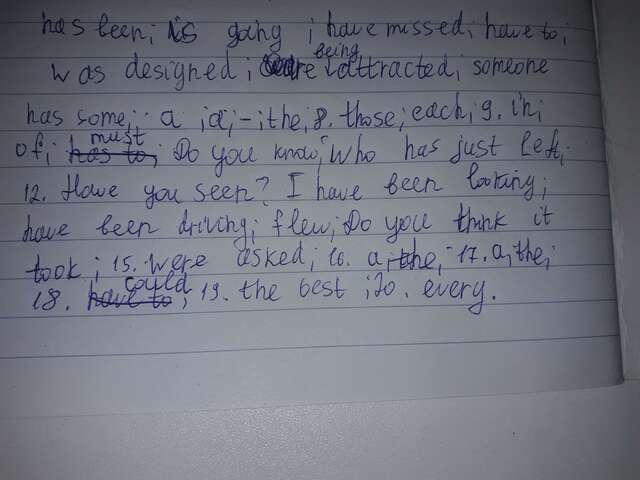 has been; is going; have missed; have to;
was designed; are being attracted; someone
has some; a; a; -; the; 8. those; each; 9. in;
of; must has to; Do you know; Who has just left;
12. Have you seen? I have been looking;
have been driving; flew; Do you think it
took; 15. were asked; 16. a, the, 17. a, the;
18. could have to; 19. the best; 20. every.